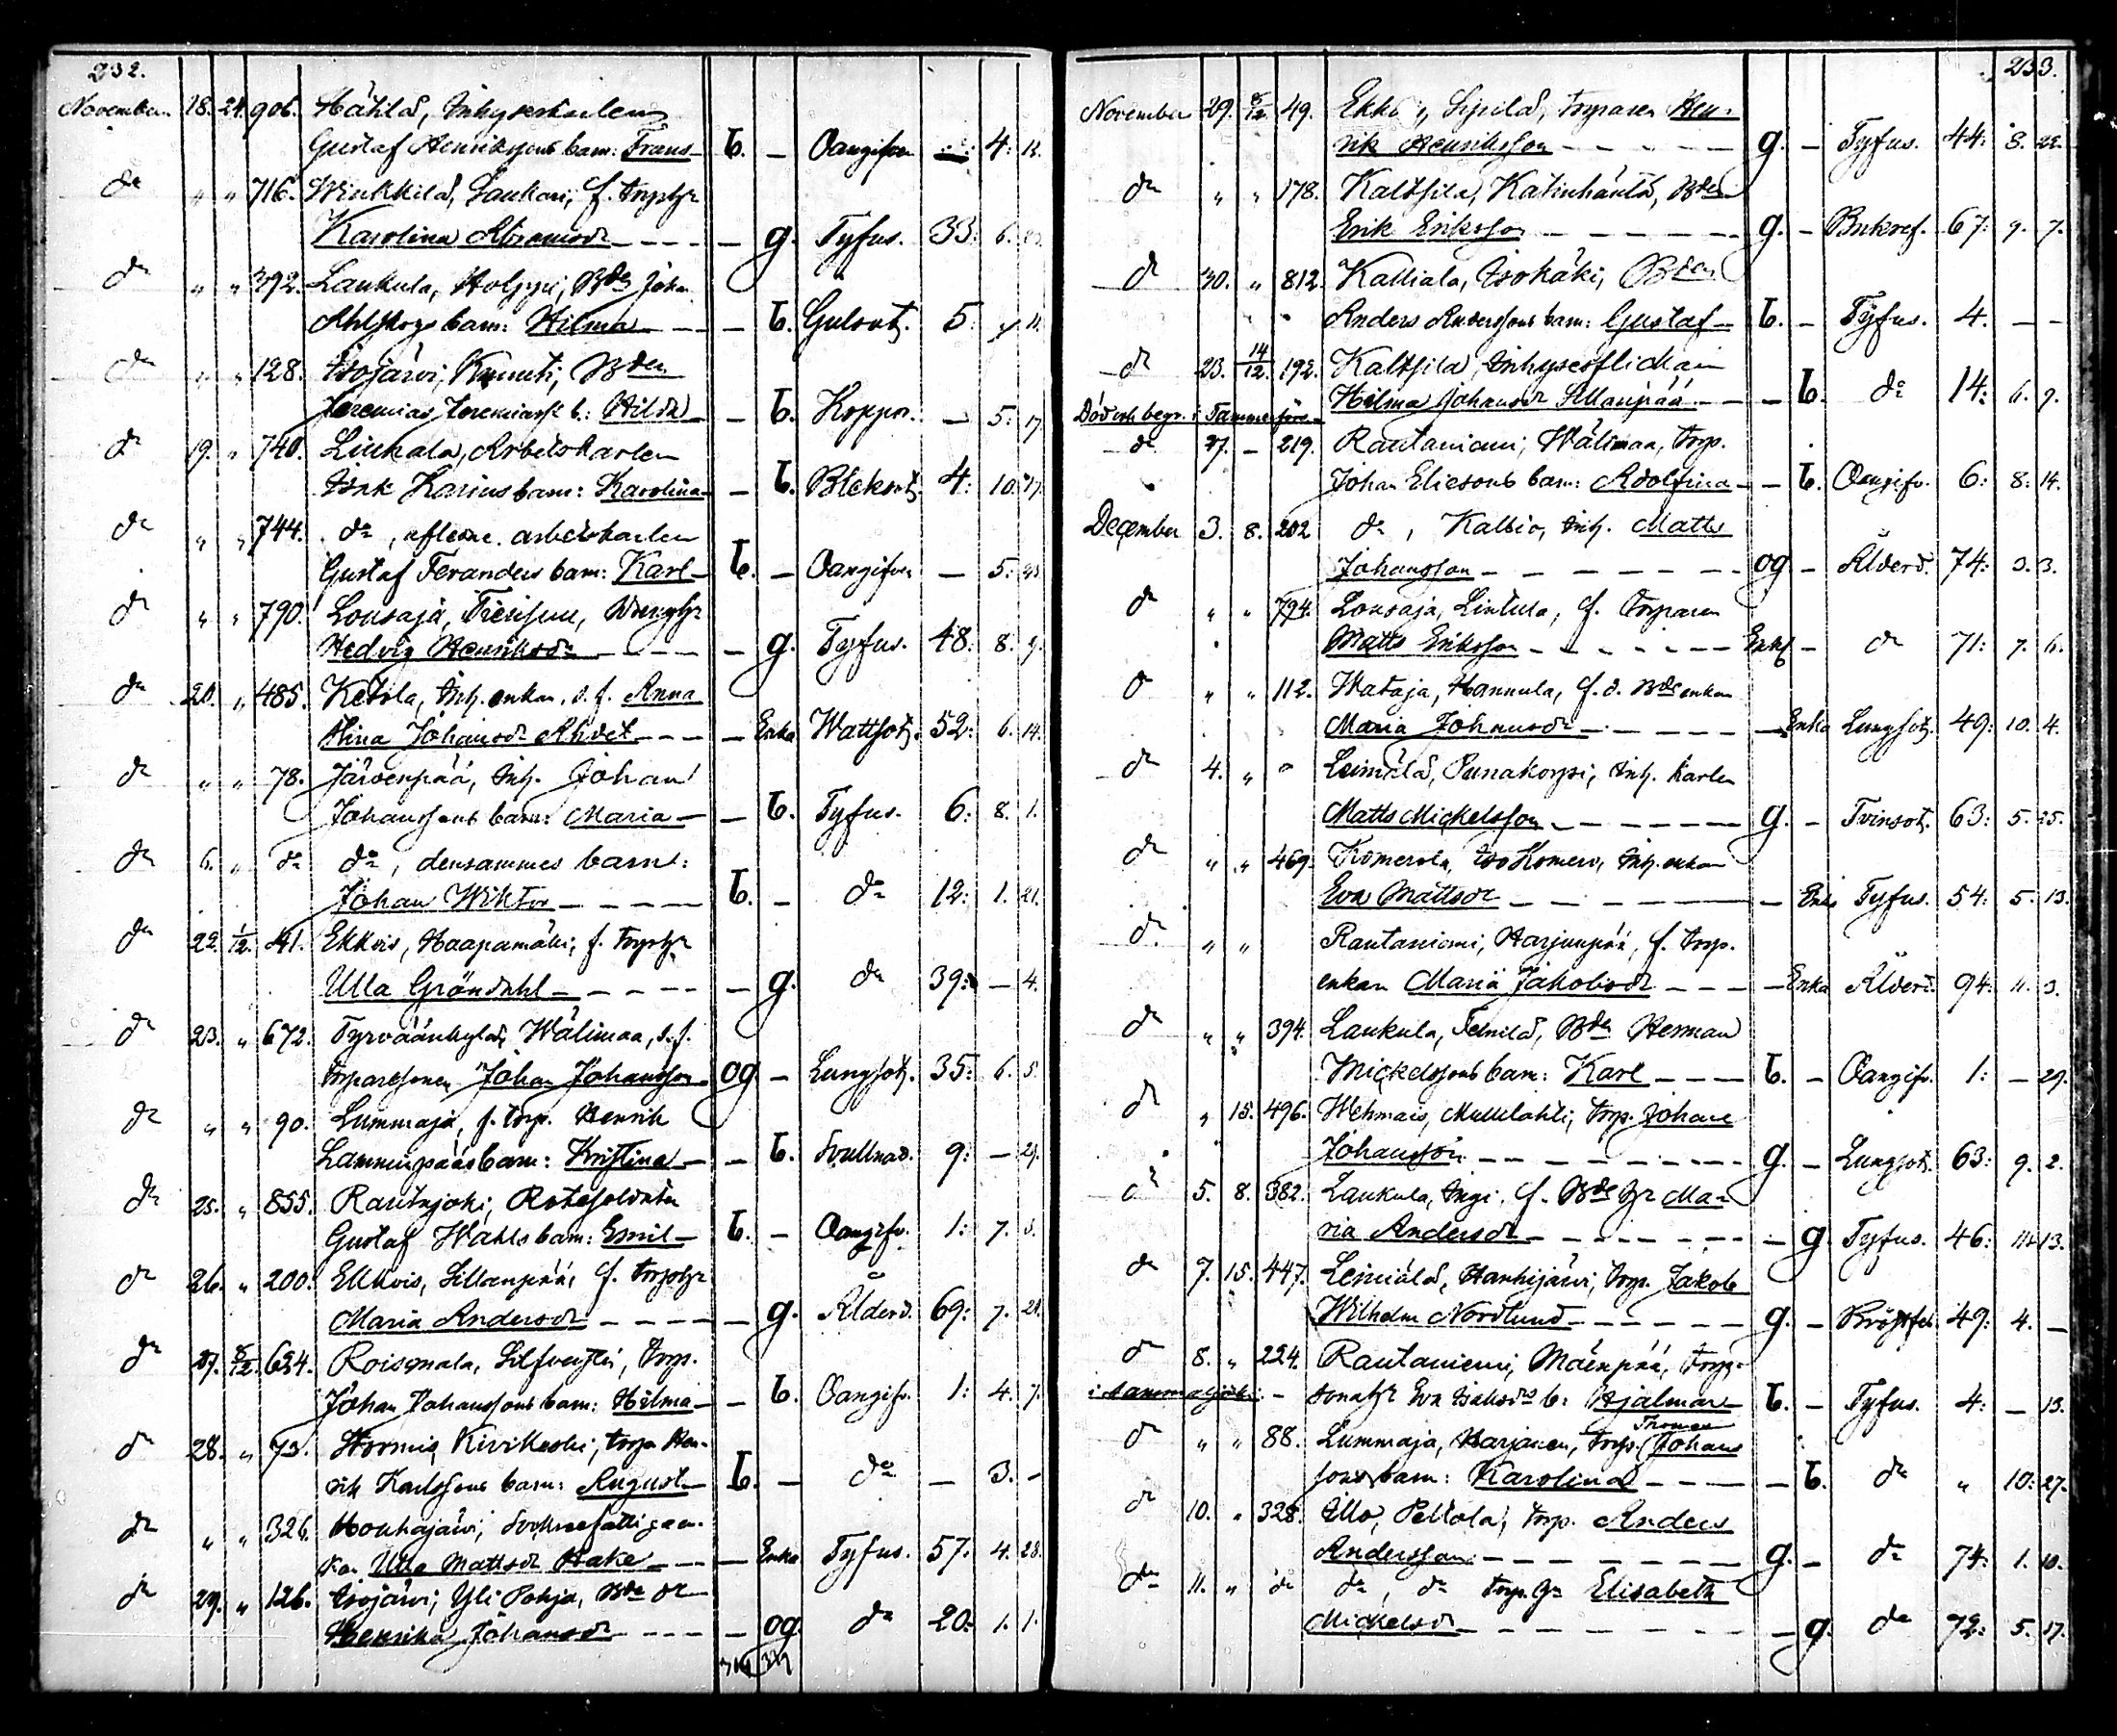 232.
November 18. 24. 906. Hätilä, Inhyseskarlens
Gustaf Henrikssons barn: Frans b. Oangifven 4: 12.
do " " 716. Winkkilä, Laukari, f. torp.h.
Karolina Abramsdr g. Tyfus. 33: 6.
do " " 392. Laukula, Holppi, Bden Johan
Ahlskogs barn: Hilma b. Gulsot. 5: " 11.
do " " 128. Isojärvi, Knuuti, Bden
Jeremias Jeremiass. b: Hilda b. Koppor. — 5: 17.
do 19. " 740. Liukala, Arbetskarlen
Isak Harius barn: Karolina b. Bleksot. 4: 10: 17.
do " " 744. do, aflidne arbetskarlen
Gustaf Feranders barn: Karl b. Oangifven — 5:
do " " 790. Lousaja, Dreng.h.
Hedvig Henriksdr g. Tyfus. 48: 8. 9.
do 20. " 485. Ketola, Inh. enkan, s. f. Anna
Stina Johansdr Ahdet Enka Wattsot. 52: 6. 14.
do " " 78. Järvenpää, Inh. Johan
Johanssons barn: Maria b. Tyfus. 6: 8. 1.
do 6. " do do, densammes barn:
Johan Wiktor b. do 12: 1. 21.
do 22. 1/12. 41. Ekkois, Haapamäki, f. torp.h.
Ulla Gröndahl g. do 39: — 4.
do 23. " 672. Tyrväänkylä, Wälimaa, s. f.
torparesonen Johan Johansson og Lungsot. 35: 6. 5.
do " " 90. Lummaja, f. torp. Henrik
Lammenpääs barn: Kristina b. Svullnad. 9: — 29.
do 25. " 855. Rautajoki, Rotesoldaten
Gustaf Wahls barn: Emil b. Oangifv. 1: 7. 3.
do 26. " 200. Ekkois, Sillanpää, f. torp.h.
Maria Andersdr g. Ålderd. 69: 7. 21.
do 27. 8/12. 624. Roismala, torp.
Johan Johanssons barn: Hilma b. Oangifv. 1: 4. 7.
do 28. " 73. Stormis, Kivikoski, torp. Hen-
rik Karlssons barn: August b. do — 3. -
do " " 326. Houhajärvi, Socknefattigaen-
kan Ulla Mattsdr Hake Enka Tyfus. 57: 4. 28.
do 29. " 126. Isojärvi, Yli Pohja, Bde dr
Henrika Johansdr og. do 20: 1. 1.
233.
November 29. 8/12. 49. Ekko , Sipilä, torparen Hen-
rik Henriksson g. Tyfus. 44: 8. 22.
do " " 178. Kaltsila, Katinhäntä, Bden
Erik Eriksson g. 67: 9. 7.
do 30. " 812. Kalliala, Isokäki, Bden
Anders Anderssons barn: Gustaf b. Tyfus. 4. — —
do 23. 14/12. 192. Kaltsila, Inhysesflickan
Hilma Johansdr Sillanpää b. do 14: 6. 9.
Död och begr. i Tammerfors
do 27. — 219. Rautaniemi, Wälimaa, torp.
Johan Eliesons barn: Adolfina b. Oangifv. 6: 8: 14.
December 3. 8. 202 do, Kallio, Inh. Matts
Johansson og Ålderd. 74: 3.
do " " 794. Lousaja, Lintula, f. torparen
Matts Eriksson Enkl. do 71: 7. 6.
do " " 112. Wataja, Hannula, f. d. Bde enkan
Maria Johansdr Enka Lungsot. 49: 10. 4.
do 4. " " Leiniälä, Punakorpi, Inh. karlen
Matts Mickelsson g. Tvinsot. 63: 5. 25.
do " " 469. Komerola, Iso Komero, Inh. enkan
Eva Mattsdr Enka Tyfus. 54: 5. 13.
do " " Rautaniemi, Harjunpää, f. torp.
enkan Maria Jakobsdr Enka Ålderd. 94: 11. 3.
do " " 394. Laukula, Bden Herman
Mickelssons barn: Karl b. Oangifv. 1: — 29.
do " 15. 496. Wehmais, Mullilahti, torp. Johan
Johansson g. Lungsot. 63: 9. 2.
do 5. 8. 382. Laukula, f. Bde h. Ma-
ria Andersdr g. Tyfus. 46: 11. 13.
do 7. 15. 447. Leiniälä, Hanhijärvi, torp. Jakob
Wilhelm Nordlund g. Bröstfeb. 49: 4. —
do 8. " 224. Rautaniemi, Mäenpää, torp.-
Eva Isaksdrs b: Hjalmar b. Tyfus. 4: — 13.
do " " 88. Lummaja, Harjanen, torp. Thomas Johans
sons barn: Karolina b. do " 10: 27.
do 10. " 328. Illo, Peltola, torp. Anders
Andersson g. do 74: 1. 10.
do 11. " do do, do torp. h. Elisabeth
Mickelsdr g. do 72: 5. 17.